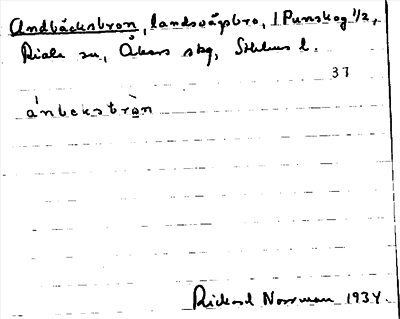 Andbäcksbron, landsvägsbro, 1 Punskog 1/2,
Riala sn, Åkers skg, Sthlms l.
37
ánbekstròn
Rickard Norrman 1934.